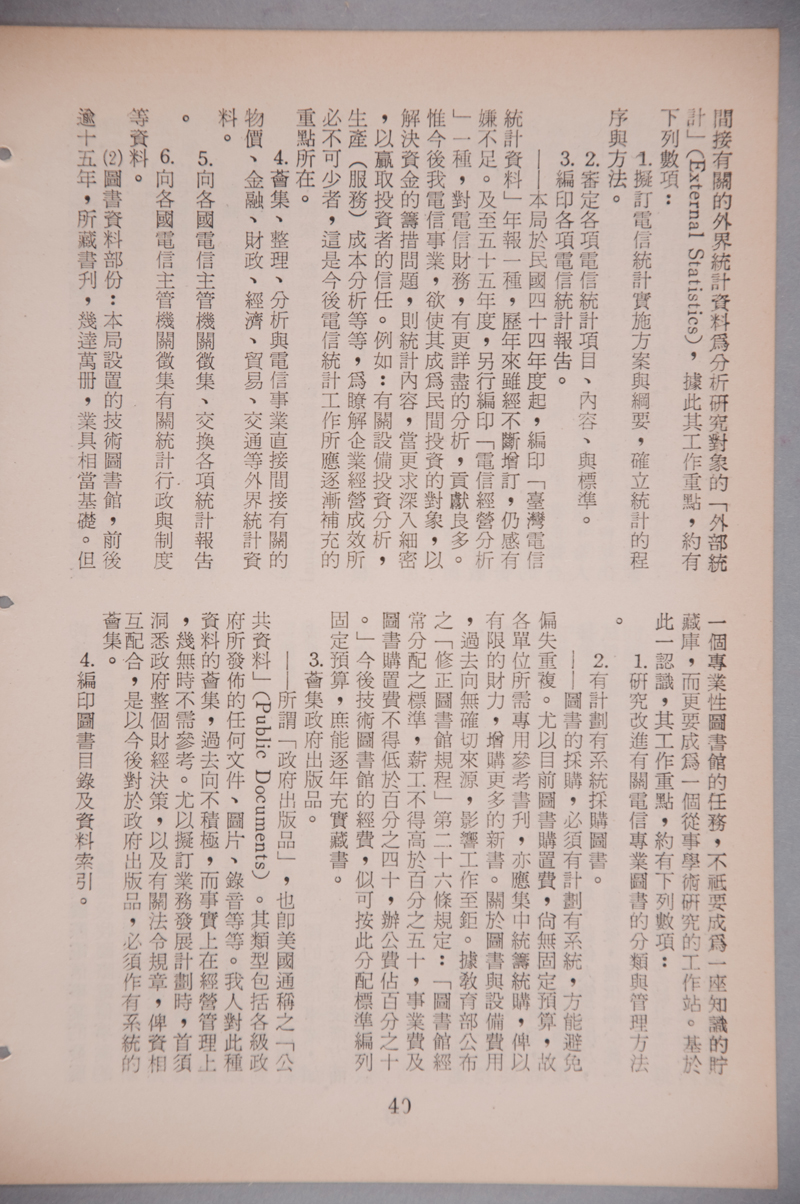 間接有關的外界統計資料爲分析研究對象的「外部統
計」(External Statistics),據此其工作重點,約有
下列數項:
1.擬訂電信統計實施方案與綱要,確立統計的程
序與方法。
2.審定各項電信統計項目、內容、與標準。
3.編印各項電信統計報告。
——本局於民國四十四年度起,編印「臺灣電信
統計資料」年報一種,歷年來雖經不斷增訂,仍感有
嫌不足。及至五十五年度,另行編印「電信經營分析
」一種,對電信財務,有更詳盡的分析,貢獻良多。
惟今後我電信事業,欲使其成爲民間投資的對象,以
解決資金的籌措問題,則統計內容,當更求深入細密
,以贏取投資者的信任。例如:有關設備投資分析,
生產(服務)成本分析等等,爲瞭解企業經營成效所
必不可少者,這是今後電信統計工作所應逐漸補充的
重點所在。
4.薈集、整理、分析與電信事業直接間接有關的
物價、金融、財政、經濟、貿易、交通等外界統計資
料。
5.向各國電信主管機關徵集、交換各項統計報告
。
6.向各國電信主管機關徵集有關統計行政與制度
等資料。
⑵圖書資料部份:本局設置的技術圖書館,前後
逾十五年,所藏書刊,幾達萬册,業具相當基礎。但
一個專業性圖書館的任務,不祇要成爲一座知識的貯
藏庫,而更要成爲一個從事學術研究的工作站。基於
此一認識,其工作重點,約有下列數項:
1.研究改進有關電信專業圖書的分類與管理方法
。
2.有計劃有系統採購圖書。
——圖書的採購,必須有計劃有系統,方能避免
偏失重複。尤以目前圖書購置費,尙無固定預算,故
各單位所需專用參考書刊,亦應集中統籌統購,俾以
有限的財力,增購更多的新書。關於圖書與設備費用
,過去向無確切來源,影響工作至鉅。據敎育部公布
之「修正圖書館規程」第二十六條規定:「圖書館經
常分配之標準,薪工不得高於百分之五十,事業費及
圖書購置費不得低於百分之四十,辦公費佔百分之十
。」今後技術圖書館的經費,似可按此分配標準編列
固定預算,庶能逐年充實藏書。
3.薈集政府出版品。
——所謂「政府出版品」,也卽美國通稱之「公
共資料」(Public Documents)。其類型包括各級政
府所發佈的任何文件、圖片、錄音等等。我人對此種
資料的薈集,過去向不積極,而事實上在經營管理上
,幾無時不需參考。尤以擬訂業務發展計劃時,首須
洞悉政府整個財經決策,以及有關法令規章,俾資相
互配合,是以今後對於政府出版品,必須作有系統的
薈集。
4.編印圖書目錄及資料索引。
40